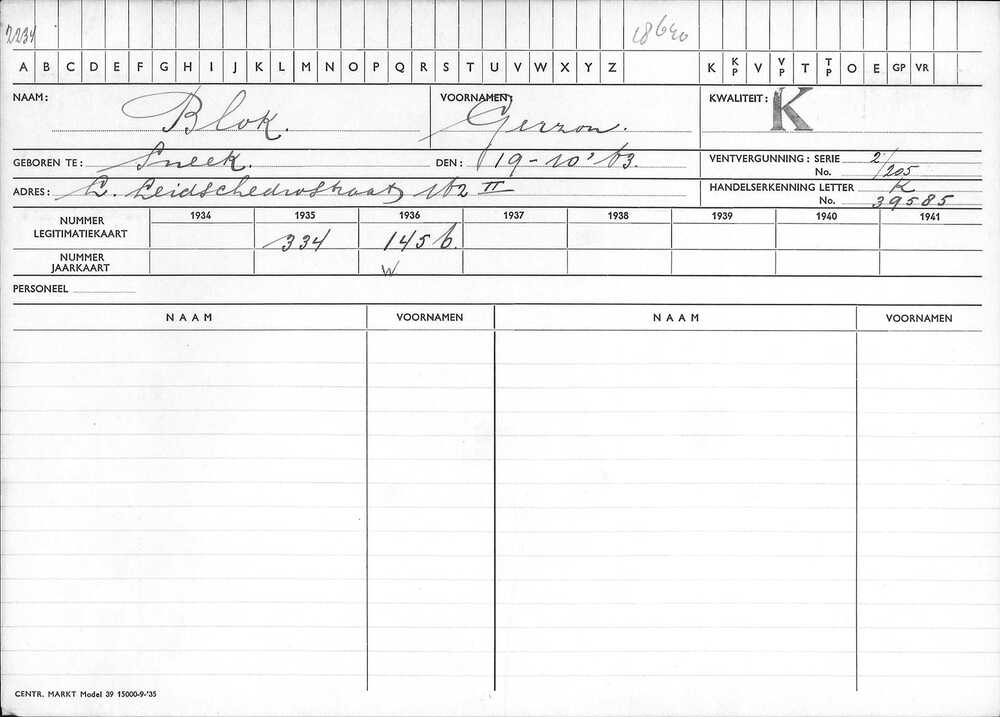 2234 18640
A B C D E F G H I J K L M N O P Q R S T U V W X Y Z K KP V VP T TP O E GP VR
NAAM: Blok. VOORNAMEN: Gerzon. KWALITEIT: K
GEBOREN TE: Sneek. DEN: 19-10'63. VENTVERGUNNING: SERIE 2
No. 205
ADRES: L. Leidschedwstraat 162 II HANDELSERKENNING LETTER K
No. 39585
1934 1935 1936 1937 1938 1939 1940 1941
NUMMER LEGITIMATIEKAART 334 1456.
NUMMER JAARKAART W
PERSONEEL
NAAM VOORNAMEN NAAM VOORNAMEN
CENTR. MARKT Model 39 15000-9-'35